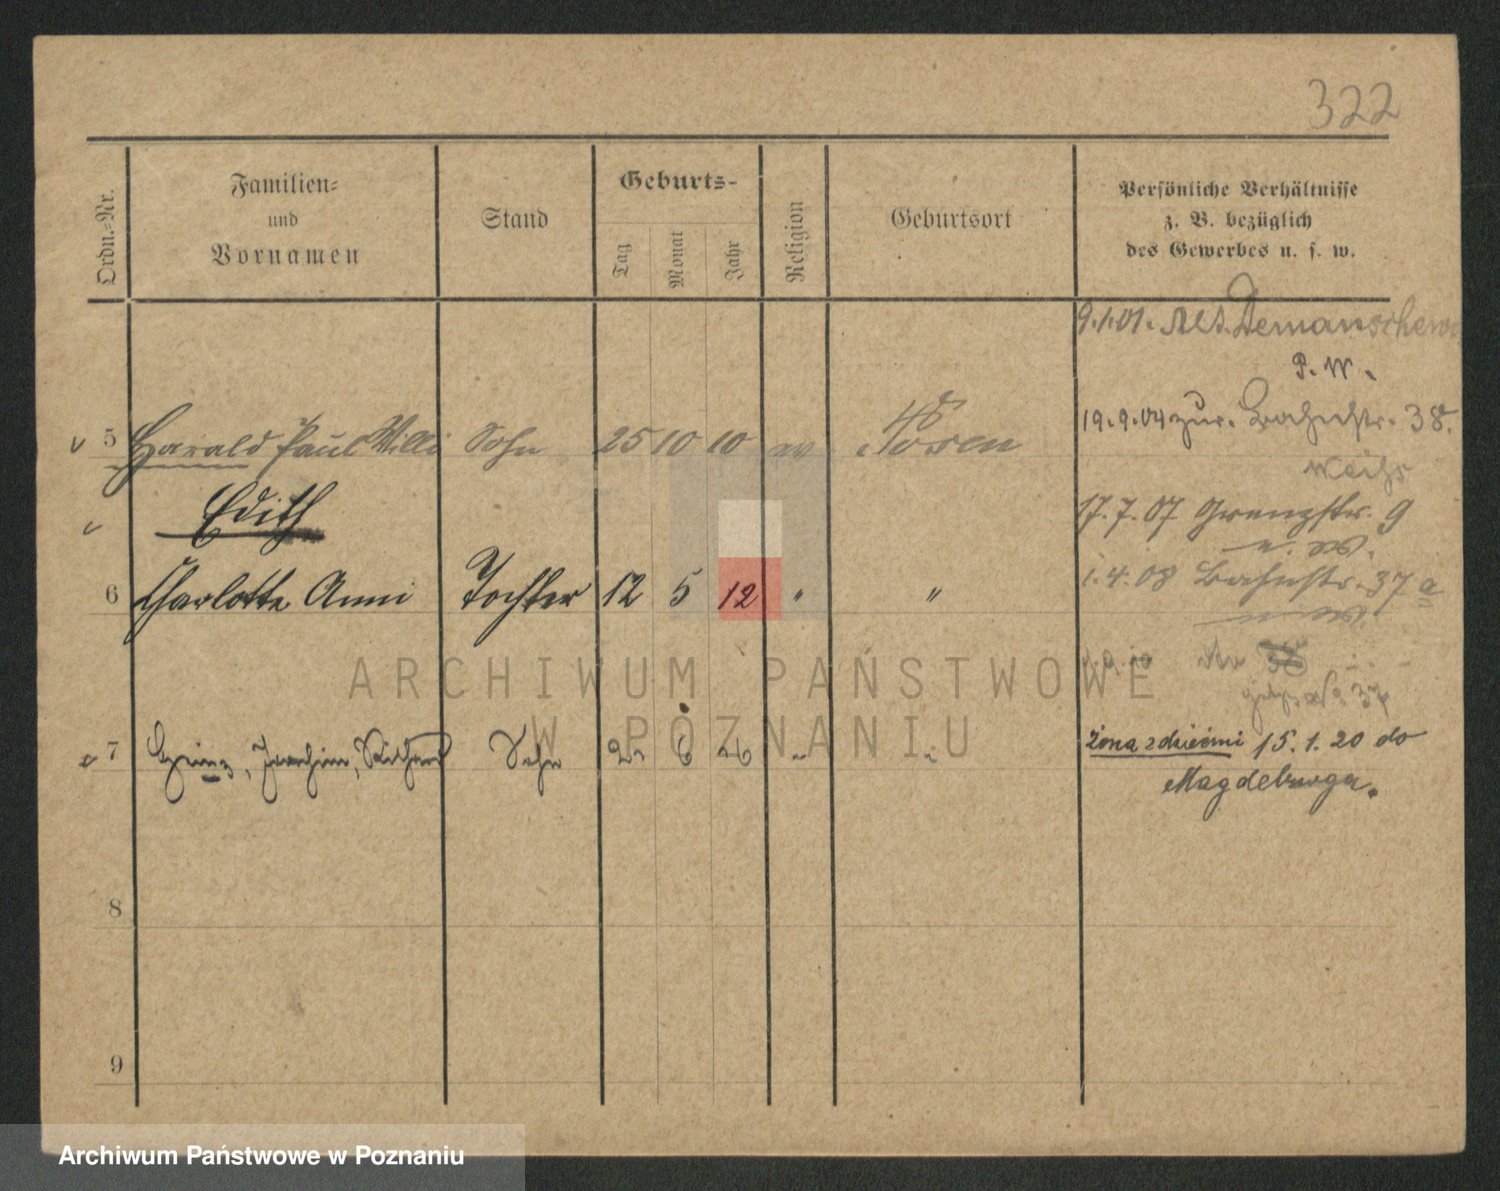 322
Ordn.-Nr.
Familien-
und
Vornamen
Stand
Geburts-
Tag
Monat
Jahr
Religion
Geburtsort
Persönliche Verhältnisse
z. B. bezüglich
des Gewerbes u. s. w.
9.1.01. Demanschew
P. W.
19.9.04 zur. Bahnstr. 38.
Weiss
5 Harald Paul Willi Sohn 25 10 10 ev Posen
17.7.07 Grenzstr. 9
Edith
1.4.08 Bahnstr. 37 a
6 Charlotte Anni Tochter 12 5 12 " "
No. 37
7 Heinz, Joachim, Richard Sohn 6 " "
żona z dziećmi 15.1.20 do
Magdeburga.
8
9
ARCHIWUM PAŃSTWOWE
W POZNANIU
Archiwum Państwowe w Poznaniu